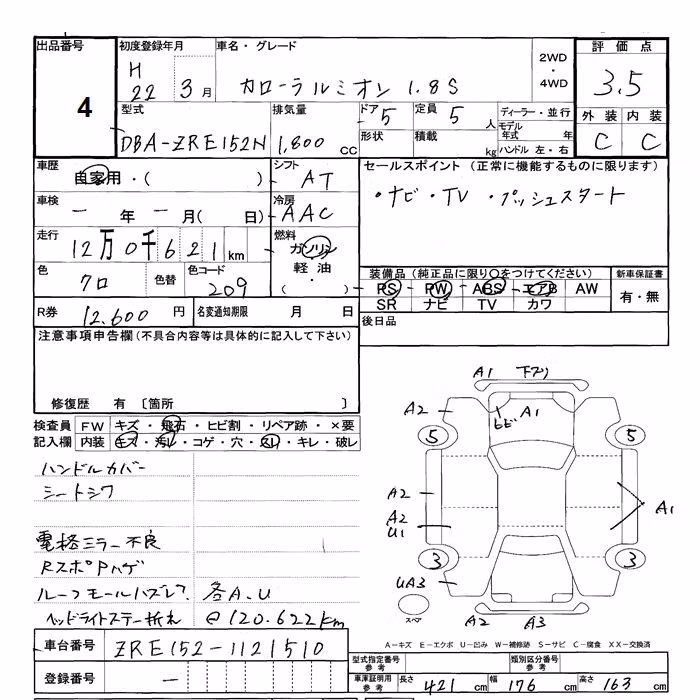 出品番号 初度登録年月 車名・グレード 評価点
4
H 22 3月 カローラルミオン 1.8S
2WD ・ 4WD
3.5
外装 内装
C C
型式 排気量 ドア 定員 ディーラー・並行
DBA-ZRE152N 1,800 cc 5 5 人
モデル年式 年
形状 積載 kg ハンドル 左・右
車歴 自家用・( ) シフト AT
セールスポイント (正常に機能するものに限ります)
・ナビ・TV ・プッシュスタート
車検 ー 年 ー 月( 日) 冷房 AAC
走行 12万0千621km 燃料 ガソリン
軽油
・( )
色 クロ 色替 色コード 209
装備品 (純正品に限り○をつけてください) 新車保証書
PS PW ABS エアB AW 有・無
SR ナビ TV カワ
R券 12,600 円 名変通知期限 月 日
後日品
注意事項申告欄(不具合内容等は具体的に記入して下さい)
修復歴 有 〔箇所 〕
検査員 FW キズ・飛石・ヒビ割・リペア跡・×要
記入欄 内装 キズ・汚レ・コゲ・穴・スレ・キレ・破レ
ハンドルカバー
シートシワ
電格ミラー不良
RスポPハゲ
ルーフモールハズレ 各A.U
ヘッドライトステー折れ @120.622km
A1 下スリ
A2 ヒビ A1
5 5
A2 A1
A2
U1
3 3
UA3
スペア A2 A3
車台番号 ZRE152-1121510
登録番号 ー
A-キズ E-エクボ U-凹み W-補修跡 S-サビ C-腐食 XX-交換済
型式指定番号 参考 類別区分番号 参考
車庫証明用 参考 長さ 421 cm 幅 176 cm 高さ 163 cm